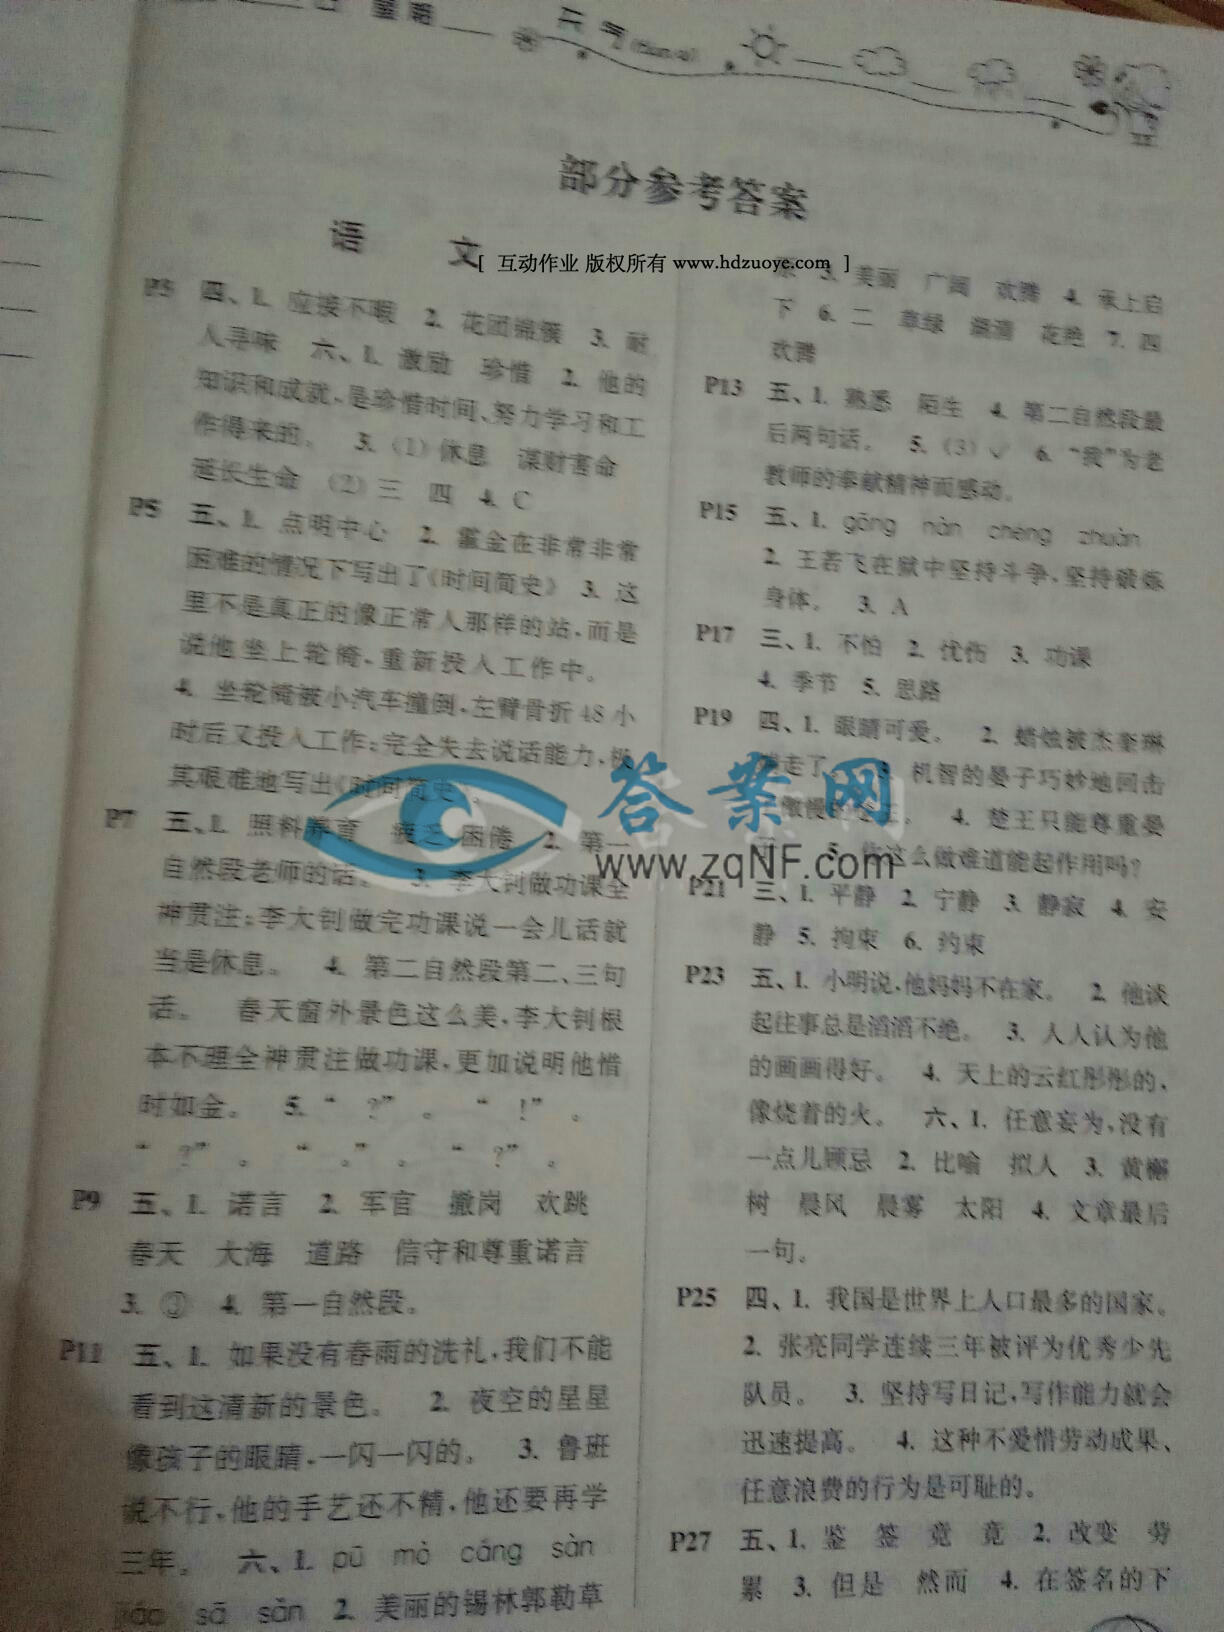 星期
天气(tiān qì)
部分参考答案
语 文
[ 互动作业 版权所有 www.hdzuoye.com ]
P3 四、1. 应接不暇 2. 花团锦簇 3. 耐
人寻味 六、1. 激励 珍惜 2. 他的
知识和成就,是珍惜时间、努力学习和工
作得来的。 3. (1)休息 谋财害命
延长生命 (2)三 四 4. C
P5 五、1. 点明中心 2. 霍金在非常非常
困难的情况下写出了《时间简史》 3. 这
里不是真正的像正常人那样的站,而是
说他坐上轮椅,重新投入工作中。
4. 坐轮椅被小汽车撞倒,左臂骨折48小
时后又投入工作;完全失去说话能力,极
其艰难地写出《时间简史》。
P7 五、1. 照料养育 疲乏困倦 2. 第一
自然段老师的话。 3. 李大钊做功课全
神贯注;李大钊做完功课说一会儿话就
当是休息。 4. 第二自然段第二、三句
话。 春天窗外景色这么美,李大钊根
本不理全神贯注做功课,更加说明他惜
时如金。 5. “ ?” 。 “ !” 。
“ ?” 。 “ 。” 。 “ ?” 。
P9 五、1. 诺言 2. 军官 撤岗 欢跳
春天 大海 道路 信守和尊重诺言
3. ③ 4. 第一自然段。
P11 五、1. 如果没有春雨的洗礼,我们不能
看到这清新的景色。 2. 夜空的星星
像孩子的眼睛,一闪一闪的。 3. 鲁班
说不行,他的手艺还不精,他还要再学
三年。 六、1. pū mò cáng sàn
sā sǎn 2. 美丽的锡林郭勒草
原 3. 美丽 广阔 欢腾 4. 承上启
下 6. 二 草绿 湖清 花艳 7. 四
欢腾
P13 五、1. 熟悉 陌生 4. 第二自然段最
后两句话。 5. (3)✓ 6. “我”为老
教师的奉献精神而感动。
P15 五、1. gōng nàn chéng zhuàn
2. 王若飞在狱中坚持斗争,坚持锻炼
身体。 3. A
P17 三、1. 不怕 2. 忧伤 3. 功课
4. 季节 5. 思路
P19 四、1. 眼睛可爱。 2. 蜡烛被杰奎琳
端走了。 3. 机智的晏子巧妙地回击
傲慢的楚王。 4. 楚王只能尊重晏
子。 5. 你这么做难道能起作用吗?
答案网
www.zqNF.com
P21 三、1. 平静 2. 宁静 3. 静寂 4. 安
静 5. 拘束 6. 约束
P23 五、1. 小明说,他妈妈不在家。 2. 他谈
起往事总是滔滔不绝。 3. 人人认为他
的画画得好。 4. 天上的云红彤彤的,
像烧着的火。 六、1. 任意妄为,没有
一点儿顾忌 2. 比喻 拟人 3. 黄槲
树 晨风 晨雾 太阳 4. 文章最后
一句。
P25 四、1. 我国是世界上人口最多的国家。
2. 张亮同学连续三年被评为优秀少先
队员。 3. 坚持写日记,写作能力就会
迅速提高。 4. 这种不爱惜劳动成果、
任意浪费的行为是可耻的。
P27 五、1. 鉴 签 竟 竟 2. 改变 劳
累 3. 但是 然而 4. 在签名的下